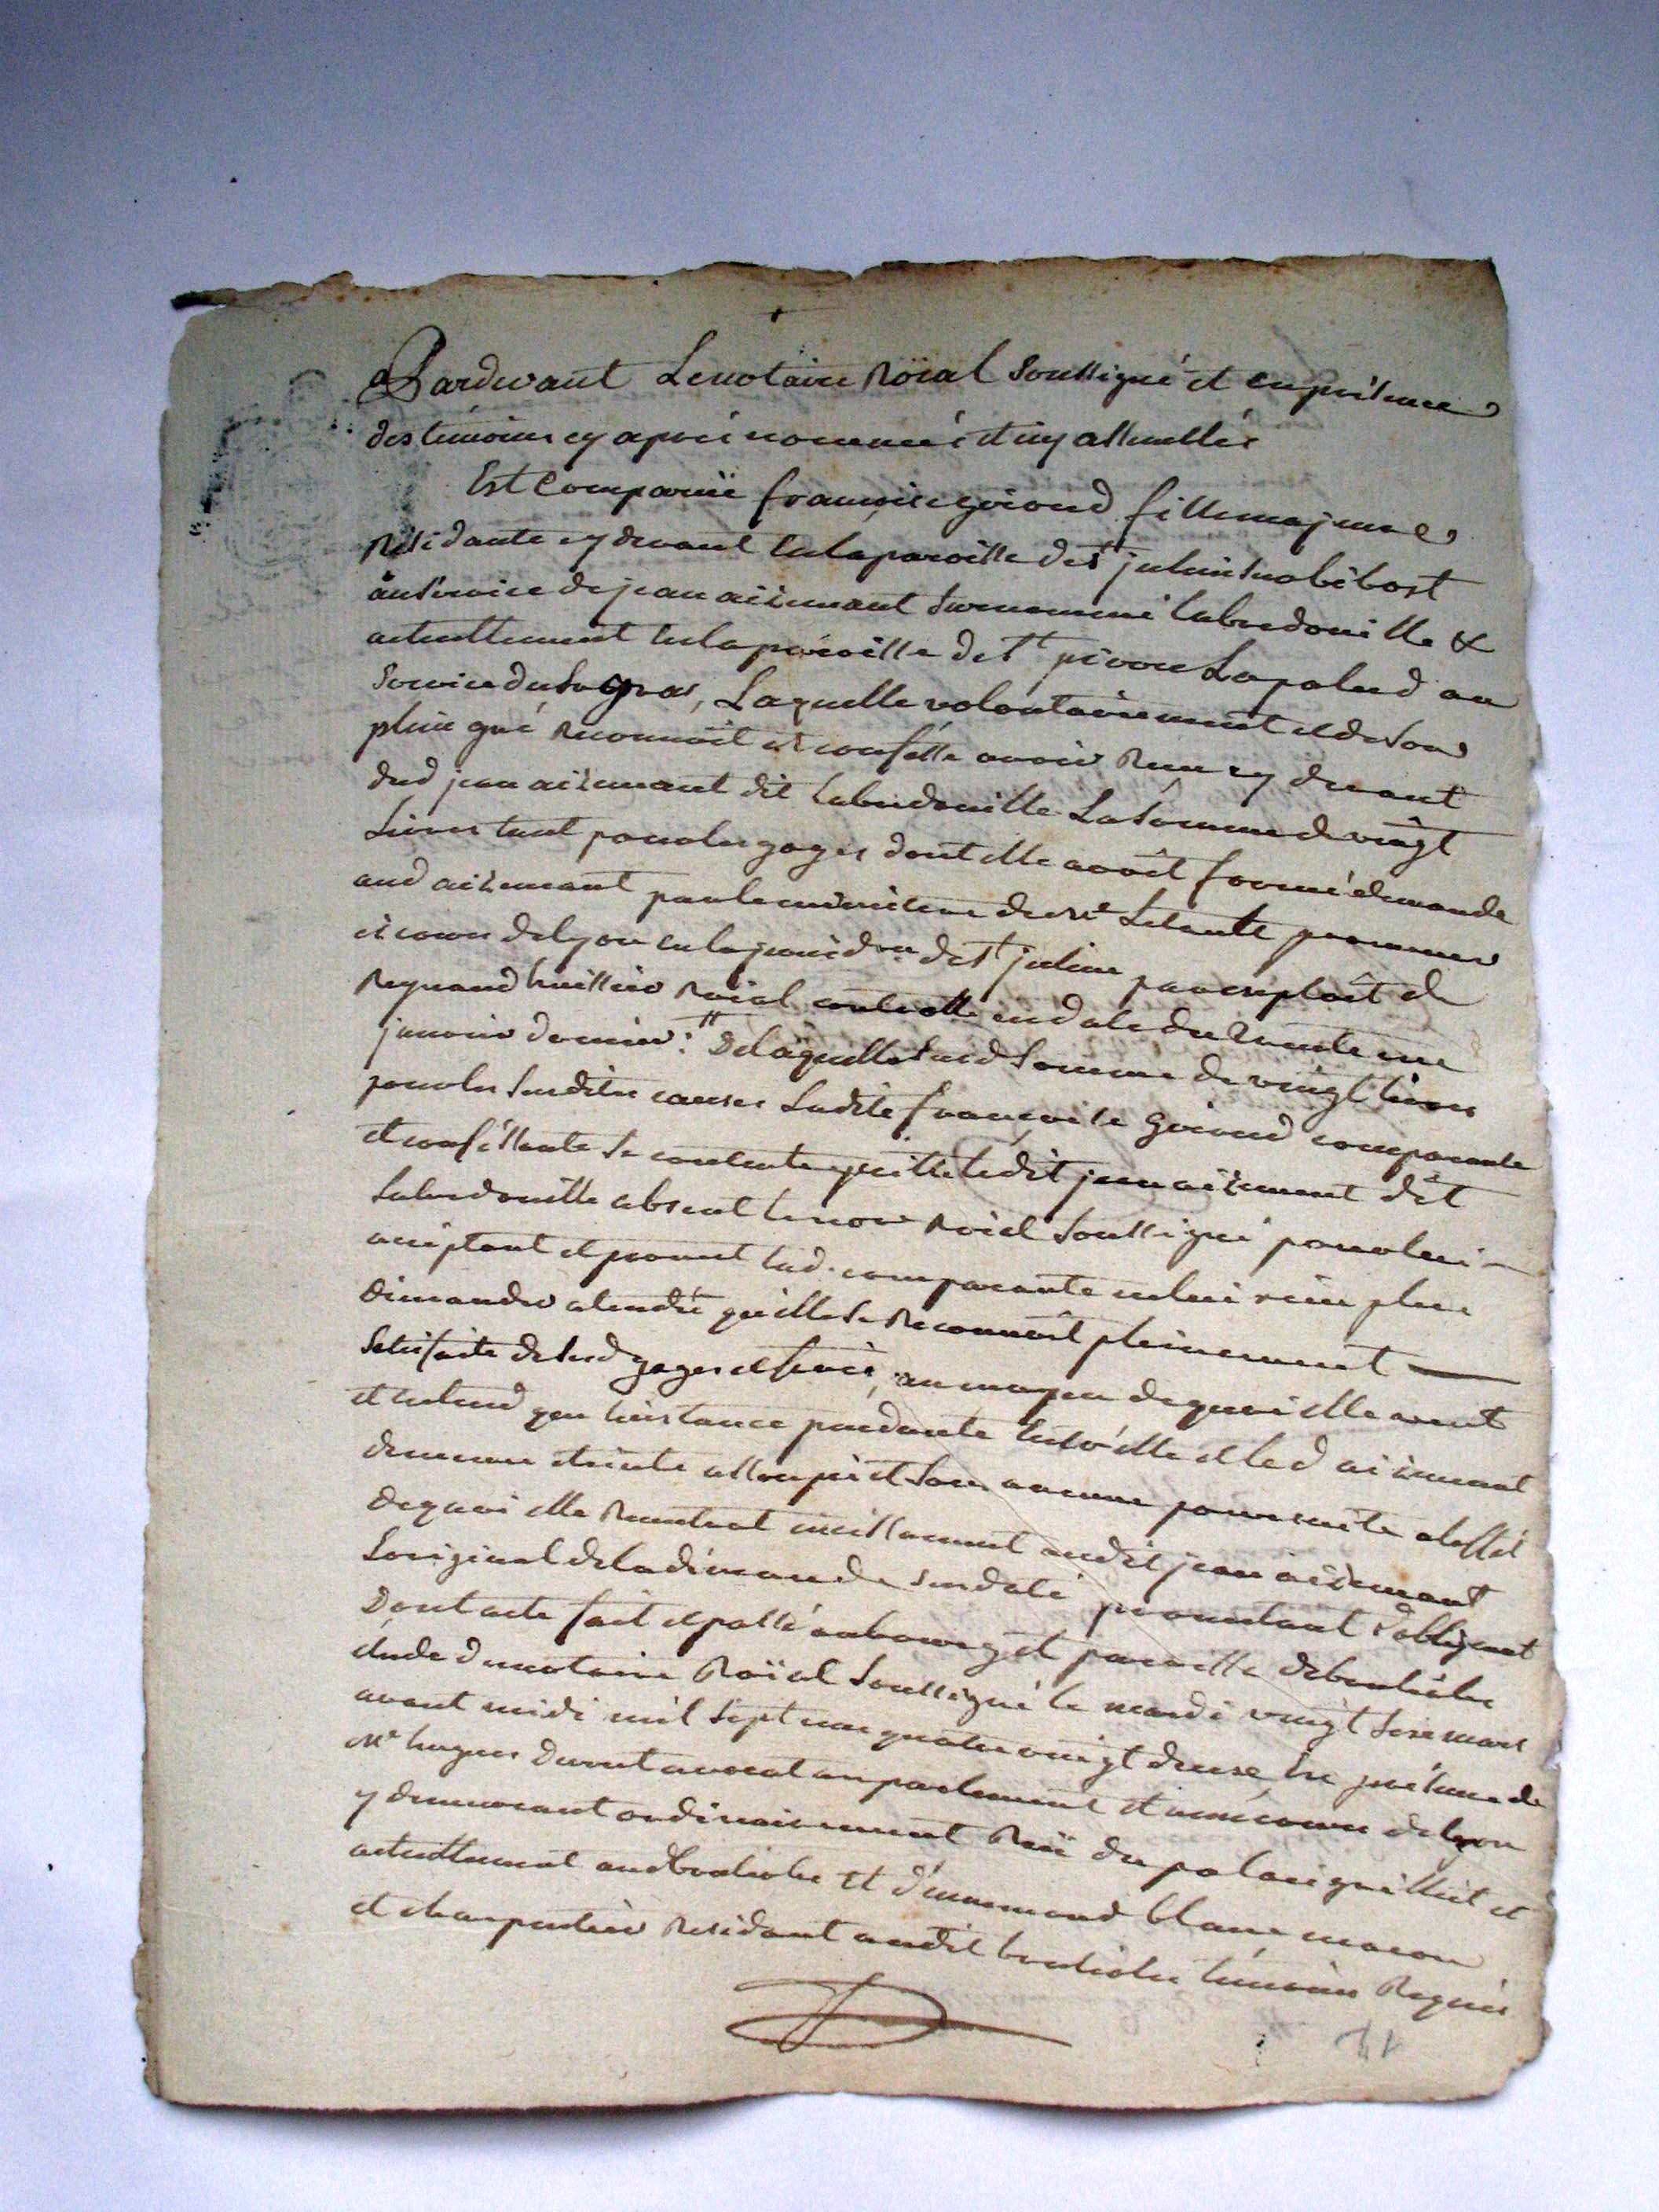 Pardevant Le notaire Roïal soussigné et en présence
des témoins cy après nommés et icy assemblés
Est Comparuë francoise giroud fille majeure
Résidante cy devant en la paroisse de St julien sur bibost
au service de jean aizemant surnommé labredouille &
actuellement en la paroisse de St pierre Lapalud au
Service du Sr gras, Laquelle volontairement et de son
plein gré reconnoit et confesse avoir Reçu cy devant
dud jean aizemant dit labredouille La somme de vingt
Livres tant pour les gages dont elle avoit formé demande
aud aizemant par le ministere de Me procureur
ès cours de Lyon en la juridon de St julien par exploit de
huissier Roial controllé en date du trente un
janvier dernier: De laquelle susd somme de vingt livres
pour les susdites causes Ladite francoise giroud comparante
et confessante se contente quitte ledit jean aizemant dit
Labredouille absent le nore Roial soussigné pour lui
acceptant et promet lad. comparante ne lui rien plus
demander attendu qu'elle se Reconnoit pleinement
satisfaite de sesd gages et service, au moyen de quoi elle consent
et entend que linstance pendante entre elle et led aizemant
demeure éteinte assoupie et sans aucune poursuite a leffet
de quoi elle Remettra incessamment audit jean aizemant
Loriginal de la demande susdatée promettant obligeant
Dont acte fait et passé au bourg et paroisse de brullioles
étude du notaire Roïal soussigné le mardi vingt six mars
avant midi mil sept cent quatre vingt deux, En présence de
Me hugues Durut avocat en parlement et ès cours de Lyon
y demeurant ordinairement Ruë du palais grillet et
actuellement aud brulioles Et d'ennemond blanc macon
et charpentier Residant audit brulioles témoins Requis